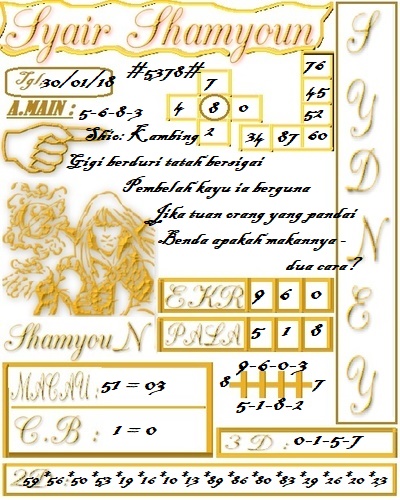 Syair Shamyoun
Tgl 30/01/18
#5378#
A.MAIN : 5-6-8-3
7
4 8 0
2
76
45
52
34 87 60
Shio: Kambing
Gigi berduri tatah bersigai
Pembelah kayu ia berguna
Jika tuan orang yang pandai
Benda apakah makannya -
dua cara?
SYDNEY
EKR 9 6 0
ShamyouN
PALA 5 1 8
MACAU : 51 = 03
C.B : 1 = 0
9-6-0-3
8 7
5-1-8-2
3D : 0-1-5-7
2D : 59*56*50*53*19*16*10*13*89*86*80*83*29*26*20*23